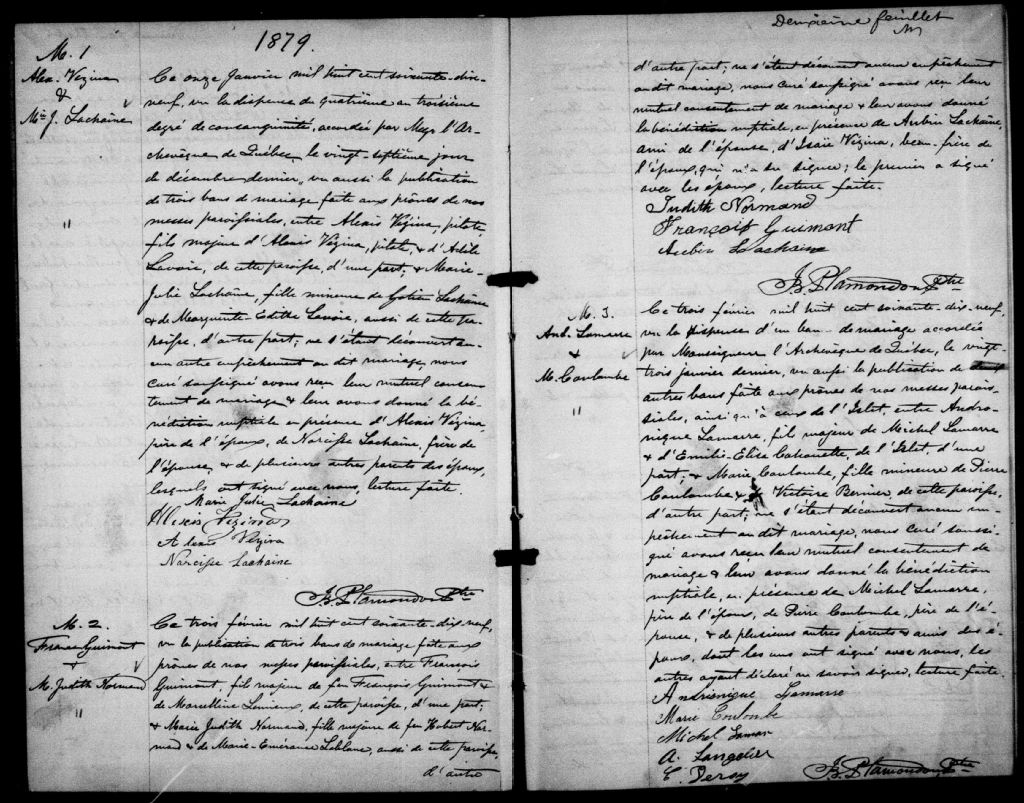 1879.
M. 1
Alex. Vézina
&
Mie J. Lachaine
"
Ce onze Janvier mil huit cent soixante-dix-
neuf, vu la dispense du quatrième au troisième
degré de consanguinité, accordée par Mgr l'Ar-
chevêque de Québec le vingt-septième jour
de décembre dernier, vu aussi la publication
de trois bans de mariage faite aux prônes de nos
messes paroissiales, entre Alexis Vézina, pilote,
fils majeur d'Alexis Vézina, pilote, & d'Adèle
Lavoie, de cette paroisse, d'une part, & Marie-
Julie Lachaîne, fille mineure de Lachaîne
& de Marguerite Edithe Lavoie, aussi de cette pa-
roisse, d'autre part; ne s'étant découvert au-
cun autre empêchement au dit mariage, nous
curé soussigné avons reçu leur mutuel consen-
tement de mariage & leur avons donné la bé-
nédiction nuptiale en présence d'Alexis Vézina,
père de l'époux, de Narcisse Lachaine, frère de
l'épouse, & de plusieurs autres parents des époux,
lesquels ont signé avec nous, lecture faite.
Marie Julie Lachaine
Alexis Vézina
Vézina
Narcisse Lachaine
J. B. Plamondon Ptre
M. 2.
François Guimont
&
M. Judith Normand
"
Ce trois février mil huit cent soixante-dix-neuf,
vu la publication de trois bans de mariage faite aux
prônes de nos messes paroissiales, entre François
Guimont, fils majeur de feu François Guimont &
de Marcelline Lemieux, de cette paroisse, d'une part;
& Marie Judith Normand, fille majeure de feu Hubert Nor-
mand & de Marie-Emérance Leblanc, aussi de cette paroisse,
d'autre
Deuxième feuillet
d'autre part; ne s'étant découvert aucun empêchement
au dit mariage, nous curé soussigné avons reçu leur
mutuel consentement de mariage & leur avons donné
la bénédiction nuptiale, en présence de Aubin Lachaine,
ami de l'épouse, d'Isaïe Vézina, beau-frère de
l'époux, qui n'a su signer; le premier a signé
avec les époux, lecture faite.
Judith Normand
François Guimont
Aubin Lachaine
J. B. Plamondon Ptre
M. 3.
And. Lamarre
&
M. Coulombe
"
Ce trois février mil huit cent soixante-dix-neuf,
vu la dispense d'un ban de mariage accordée
par Monseigneur l'Archevêque de Québec, le vingt-
trois janvier dernier, vu aussi la publication de deux
autres bans faite aux prônes de nos messes parois-
siales, ainsi qu'à ceux de l'Islet, entre Andro-
nique Lamarre, fils majeur de Michel Lamarre
& d'Emilie-Elisa Cahouette, de l'Islet, d'une
part; & Marie Coulombe, fille mineure de Pierre
Coulombe & Victoire Bernier, de cette paroisse,
d'autre part; ne s'étant découvert aucun em-
pêchement au dit mariage, nous curé sousi-
gné avons reçu leur mutuel consentement de
mariage & leur avons donné la bénédiction
nuptiale, en présence de Michel Lamarre,
père de l'époux, de Pierre Coulombe, père de l'é-
pouse, & de plusieurs autres parents & amis des é-
poux, dont les uns ont signé avec nous, les
autres ayant déclaré ne savoir signer, lecture faite.
Andronique Lamarre
Marie Coulombe
Michel Lamar
A. Langelier
J. B. Plamondon Ptre